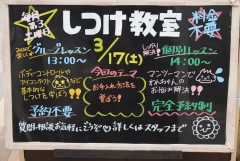 毎月第3土曜日
しつけ教室
料金不要
3/17(土)
グループレッスン
13:00〜
ボディコントロールや
アイコンタクトなど
基本的な
しつけを学ぼう!!
予約不要
今回のテーマ
お手入れ方法を
学ぼう!
しっかり解決!
個別レッスン
14:00〜
マンツーマンで
わんちゃんの
お悩み解決!!
完全予約制
質問・相談お気軽にどうぞ♡詳しくはスタッフまで